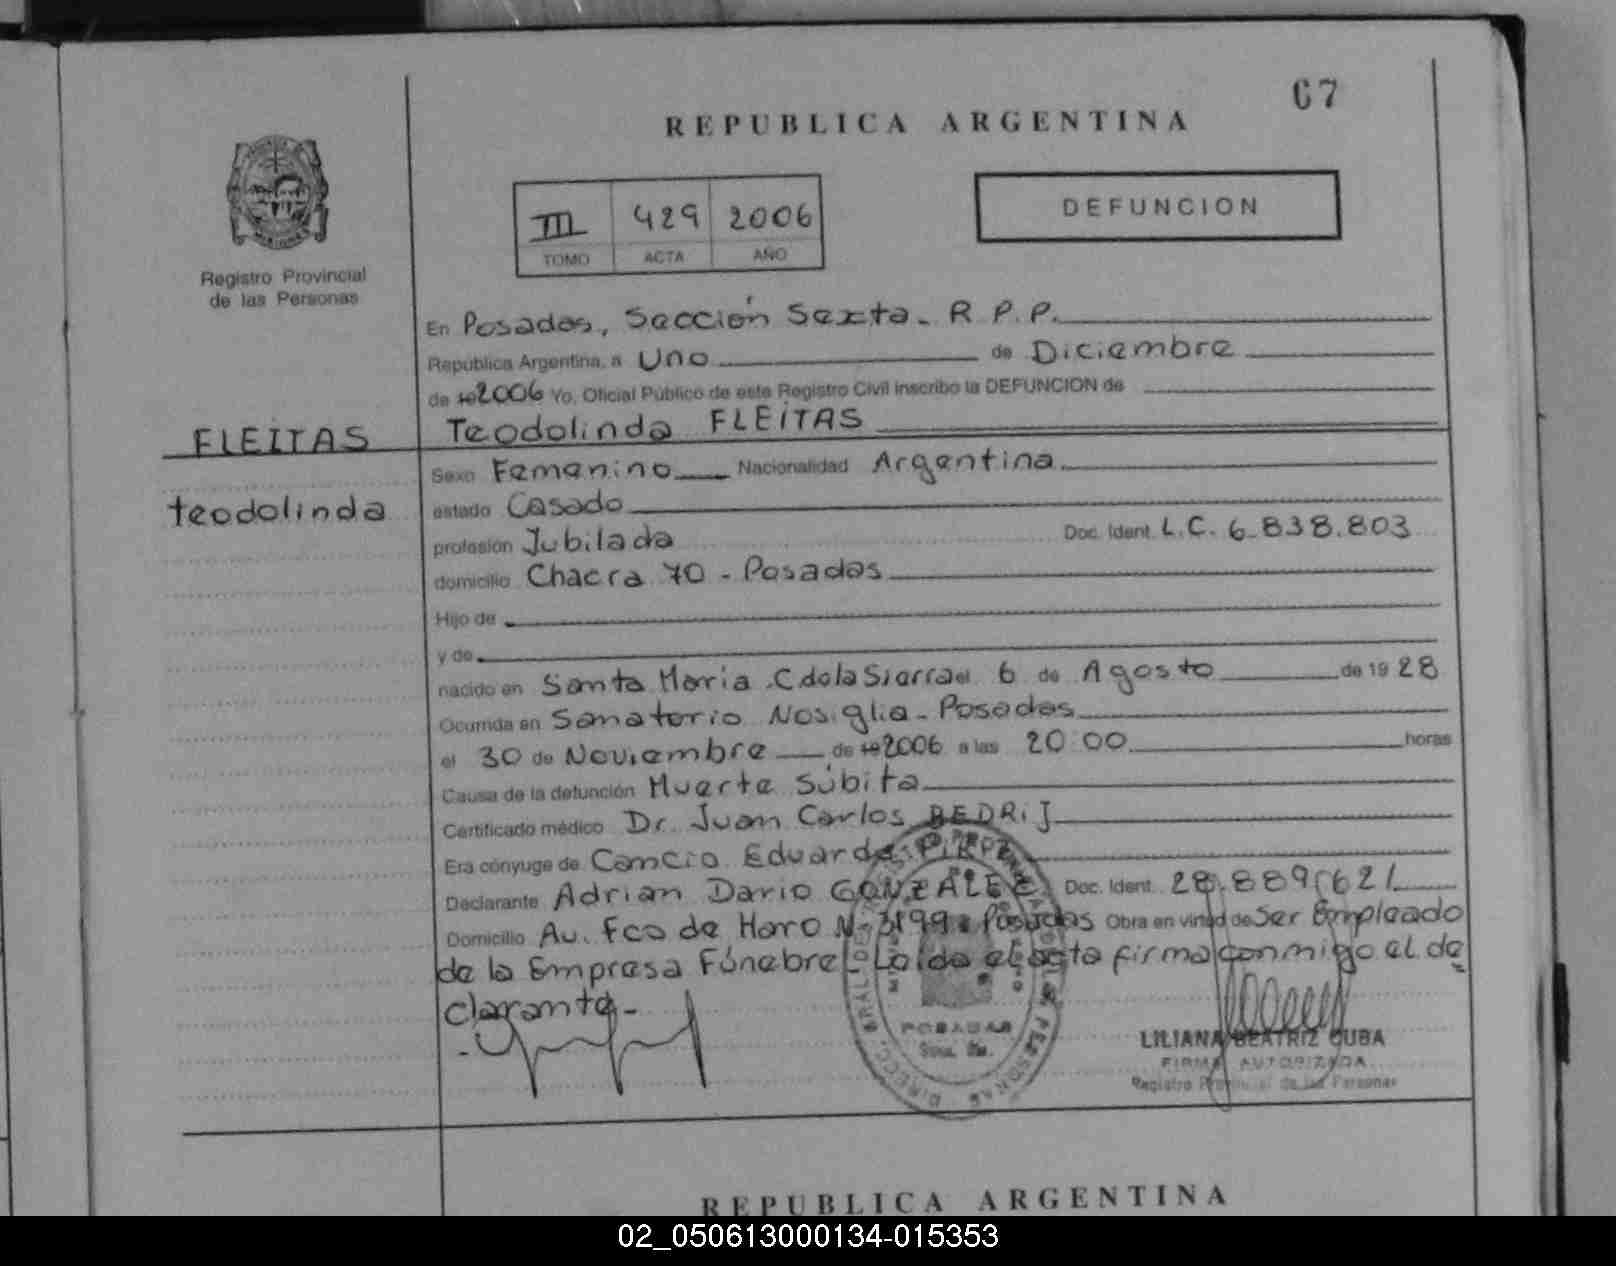 67
REPUBLICA ARGENTINA
III 429 2006
TOMO ACTA AÑO
DEFUNCION
MISIONES
Registro Provincial
de las Personas
En Posadas, Sección Sexta. R. P. P.
República Argentina, a Uno de Diciembre
de 19 2006 Yo, Oficial Público de este Registro Civil inscribo la DEFUNCION de
FLEITAS
teodolinda
Teodolinda FLEITAS
Sexo Femenino Nacionalidad Argentina
estado Casado
profesión Jubilada Doc. Ident. L.C. 6.838.803
domicilio Chacra 70 - Posadas
Hijo de
y de
nacido en Santa Maria C de la Sierra el 6 de Agosto de 19 28
Ocurrida en Sanatorio Nosiglia - Posadas
el 30 de Noviembre de 19 2006 a las 20:00 horas
Causa de la defunción Muerte Súbita
Certificado médico Dr. Juan Carlos BEDRIJ
Era cónyuge de Cancio Eduardo
Declarante Adrian Dario GONZALEZ Doc. Ident. 28.889.621
Domicilio Av. Fco de Haro N 3199 Posadas Obra en virtud de Ser Empleado
de la Empresa Fúnebre - Leída el acta firma conmigo el de
clarante -
POSADAS
LILIANA BEATRIZ CUBA
FIRMA AUTORIZADA
Registro Provincial de las Personas
REPUBLICA ARGENTINA
02_050613000134-015353